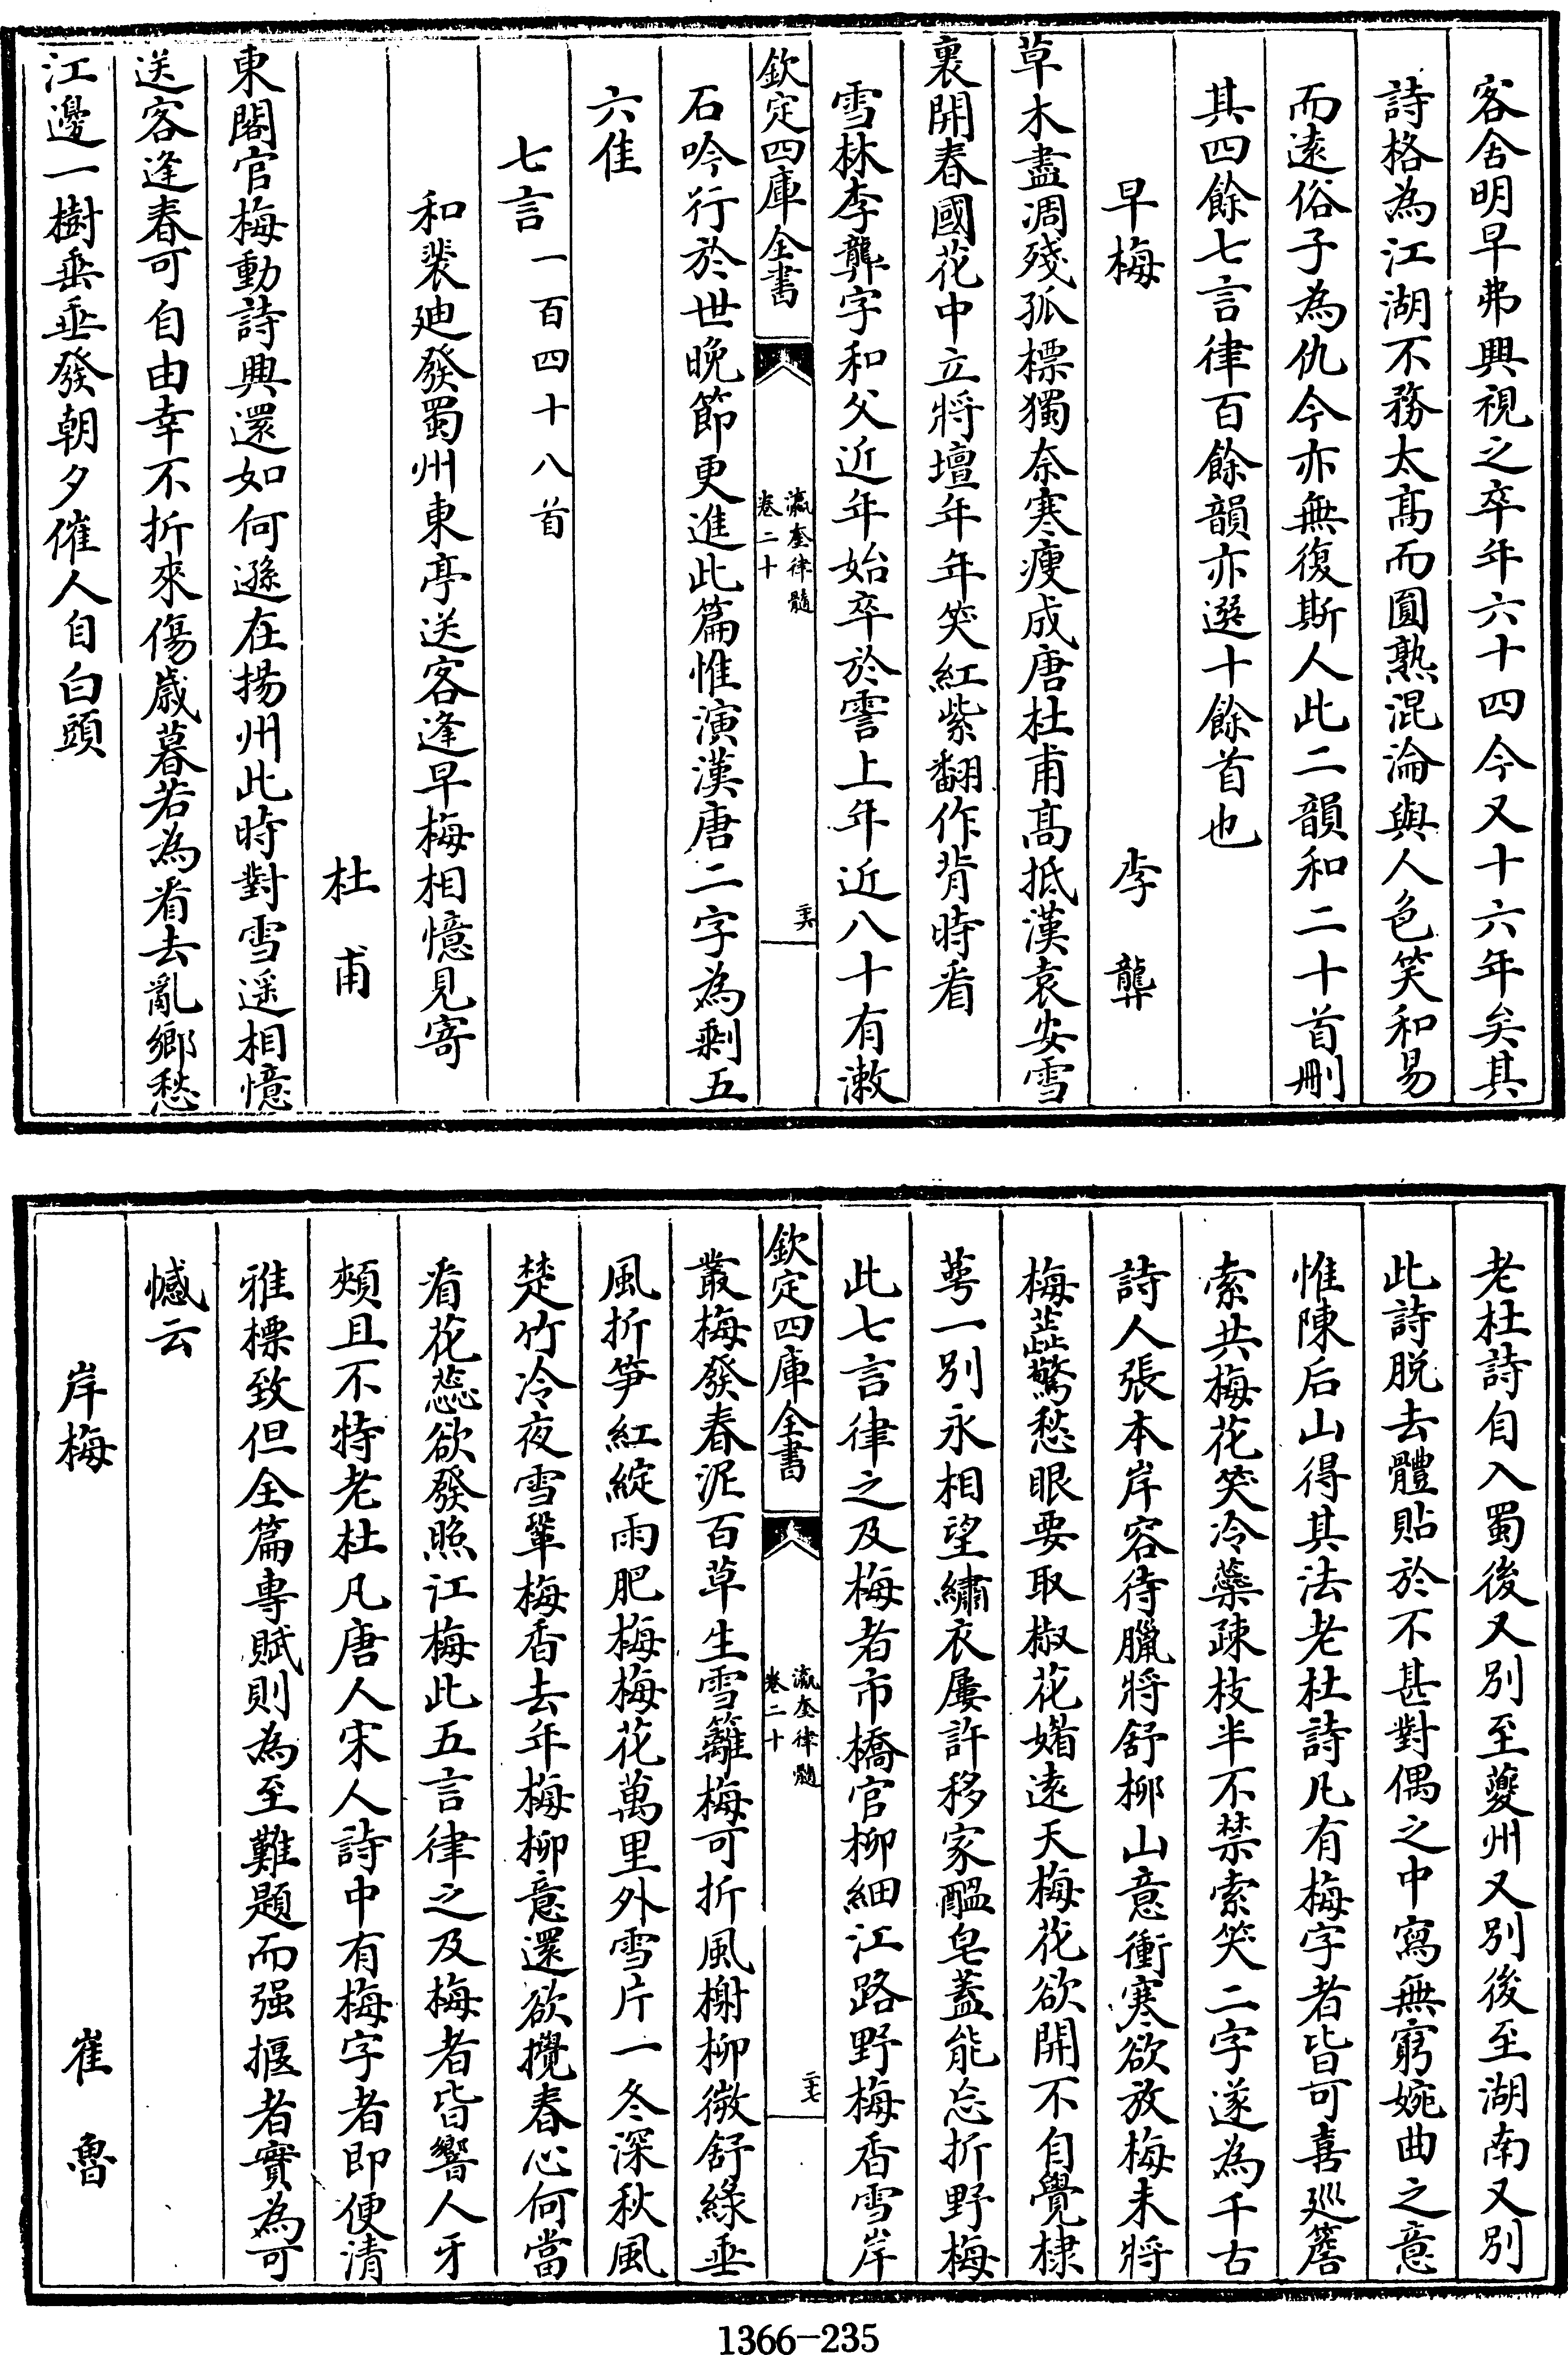 客舍明早弗興視之卒年六十四今又十六年矣其
詩格為江湖不務太髙而圓熟混淪與人色笑和易
而逺俗子為仇今亦無復斯人此二韻和二十首刪
其四餘七言律百餘韻亦選十餘首也
早梅 李龏
草木盡凋殘孤標獨奈寒瘦成唐杜甫髙抵漢袁安雪
裏開春國花中立將壇年年笑紅紫翻作背時看
雪林李龏字和父近年始卒於霅上年近八十有潄
欽定四庫全書
瀛奎律髓
卷二十
二十六
石吟行於世晚節更進此篇惟演漢唐二字為剩五
六佳
七言一百四十八首
和裴廸發蜀州東亭送客逢早梅相憶見寄
杜甫
東閣官梅動詩興還如何遜在揚州此時對雪遥相憶
送客逢春可自由幸不折來傷歲暮若為看去亂鄉愁
江邊一樹垂垂發朝夕催人自白頭
老杜詩自入蜀後又別至夔州又別後至湖南又別
此詩脱去體貼於不甚對偶之中寫無窮婉曲之意
惟陳后山得其法老杜詩凡有梅字者皆可喜廵簷
索共梅花笑冷蘂疎枝半不禁索笑二字遂為千古
詩人張本岸容待臘將舒柳山意衝寒欲放梅未將
梅蕋驚愁眼要取椒花媚逺天梅花欲開不自覺棣
萼一別永相望繡衣屢許移家醖皂蓋能忘折野梅
此七言律之及梅者市橋官柳細江路野梅香雪岸
欽定四庫全書
瀛奎律髓
卷二十
二十七
叢梅發春泥百草生雪籬梅可折風榭柳微舒緑垂
風折笋紅綻雨肥梅梅花萬里外雪片一冬深秋風
楚竹冷夜雪鞏梅香去年梅柳意還欲攪春心何當
看花蕊欲發照江梅此五言律之及梅者皆響人牙
頰且不特老杜凡唐人宋人詩中有梅字者即便清
雅標致但全篇專賦則為至難題而强揠者實為可
憾云
岸梅 崔魯
1366-235